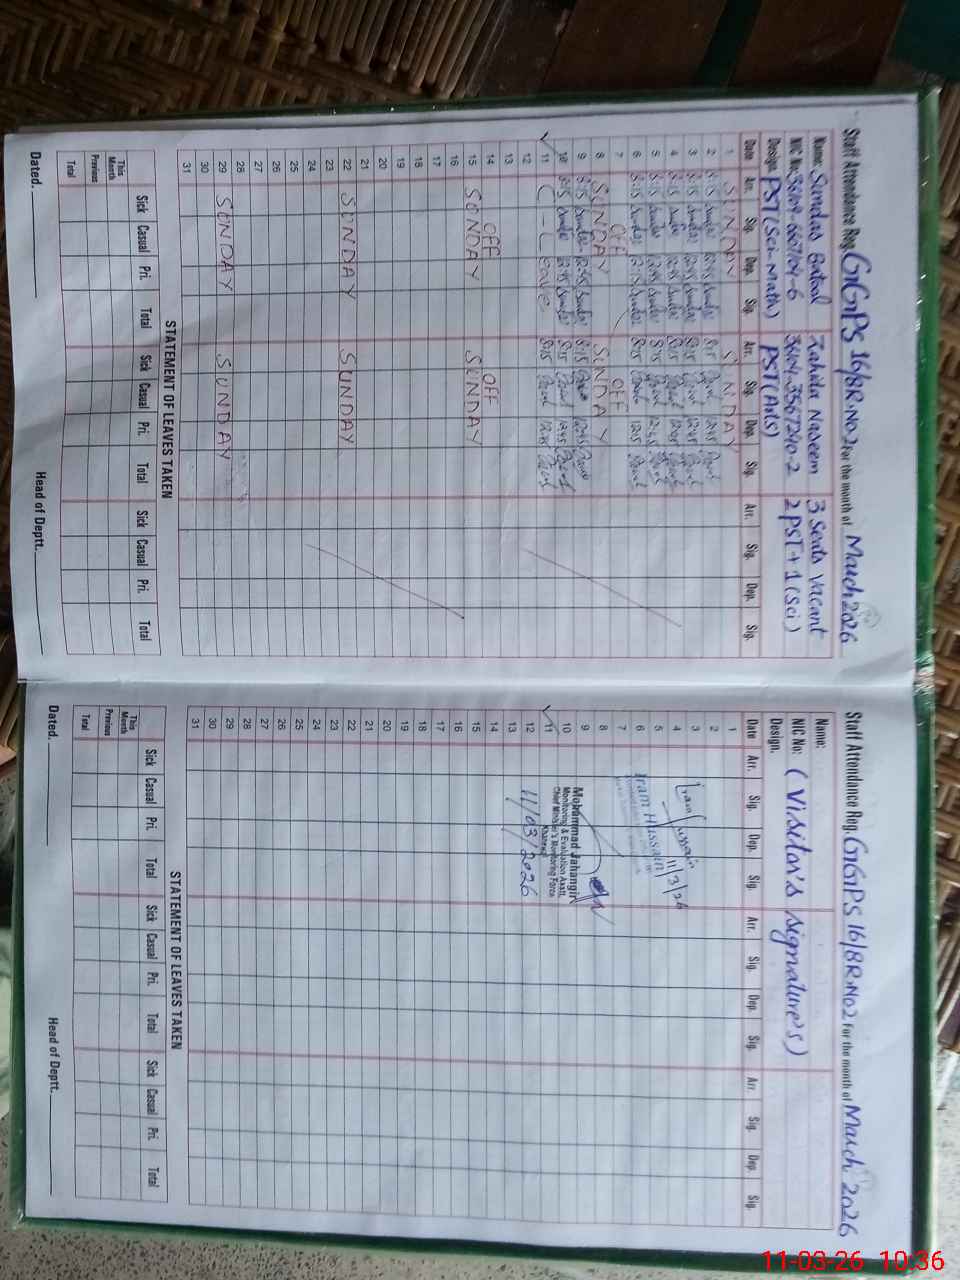 Staff Attendance Reg. GGPS 16/8R.No2 For the month of March 2026
Name: Sundas Batool Zahida Naseem 3 Seats Vacant
NIC No: 2PST + 1(Sci)
Design. PST(Sci-Math) PST(Arts)
Date Arr. Sig. Dep. Sig. Arr. Sig. Dep. Sig. Arr. Sig. Dep. Sig.
1 SUNDAY SUNDAY
2 8:15 Sundas 12:45 Sundas 8:15 12:45
3 8:15 Sundas 12:45 Sundas 8:15 12:45
4 8:15 Sundas 12:45 Sundas 8:15 12:45
5 8:15 Sundas 12:45 Sundas 8:15 12:45
6 8:15 Sundas Sundas 8:15
7 OFF OFF
8 SUNDAY SUNDAY
9 8:15 Sundas 12:45 Sundas 8:15 12:45
10 8:15 Sundas 12:45 Sundas 8:15 12:45
11 C-Leave 8:15 12:45
12
13
14 OFF OFF
15 SUNDAY SUNDAY
16
17
18
19
20
21
22 SUNDAY SUNDAY
23
24
25
26
27
28
29 SUNDAY SUNDAY
30
31
STATEMENT OF LEAVES TAKEN
Sick Casual Pri. Total Sick Casual Pri. Total Sick Casual Pri. Total
This Month
Previous
Total
Dated. Head of Deptt.
Staff Attendance Reg. GGPS 16/8R.No2 For the month of March 2026
Name:
NIC No: (Visitor's Signature's)
Design.
Date Arr. Sig. Dep. Sig. Arr. Sig. Dep. Sig. Arr. Sig. Dep. Sig.
1
2
3
4
5
6
7
8
9
10
11
12
13
14
15
16
17
18
19
20
21
22
23
24
25
26
27
28
29
30
31
Iram Hussain
11/3/26
Iram Hussain
Mohammad Jahangir
Monitoring & Evaluation Asstt.
Chief Minister's Monitoring Force
Khanewal
11/03/2026
STATEMENT OF LEAVES TAKEN
Sick Casual Pri. Total Sick Casual Pri. Total Sick Casual Pri. Total
This Month
Previous
Total
Dated. Head of Deptt.
11-03-26 10:36